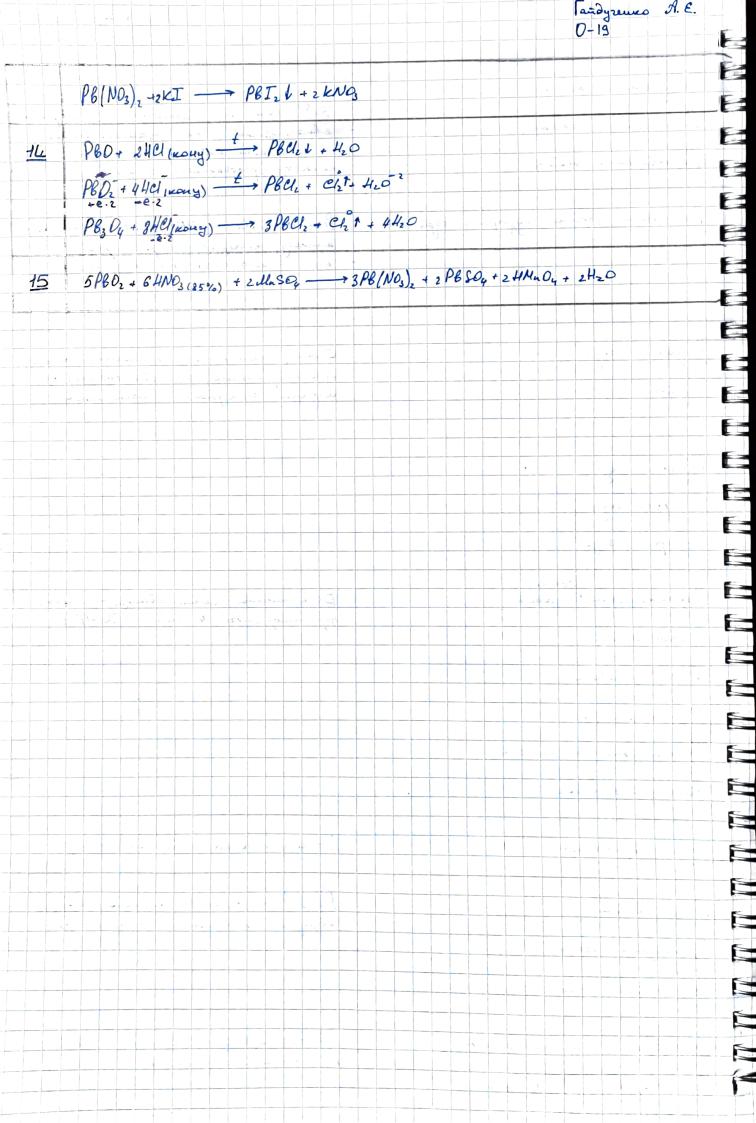 Гайдученко А. Е.
О-19
Pb(NO₃)₂ + 2KI → PbI₂↓ + 2KNO₃
14 PbO + 2HCl (конц) →t PbCl₂↓ + H₂O
PbO₂⁻ + 4HCl⁻ (конц) →t PbCl₂ + Cl₂⁰↑ + H₂O⁻²
+e·2 -e·2
Pb₃O₄ + 8HCl⁻ (конц) → 3PbCl₂ + Cl₂⁰↑ + 4H₂O
-e·2
15 5PbO₂ + 6HNO₃ (25%) + 2MnSO₄ → 3Pb(NO₃)₂ + 2PbSO₄ + 2HMnO₄ + 2H₂O